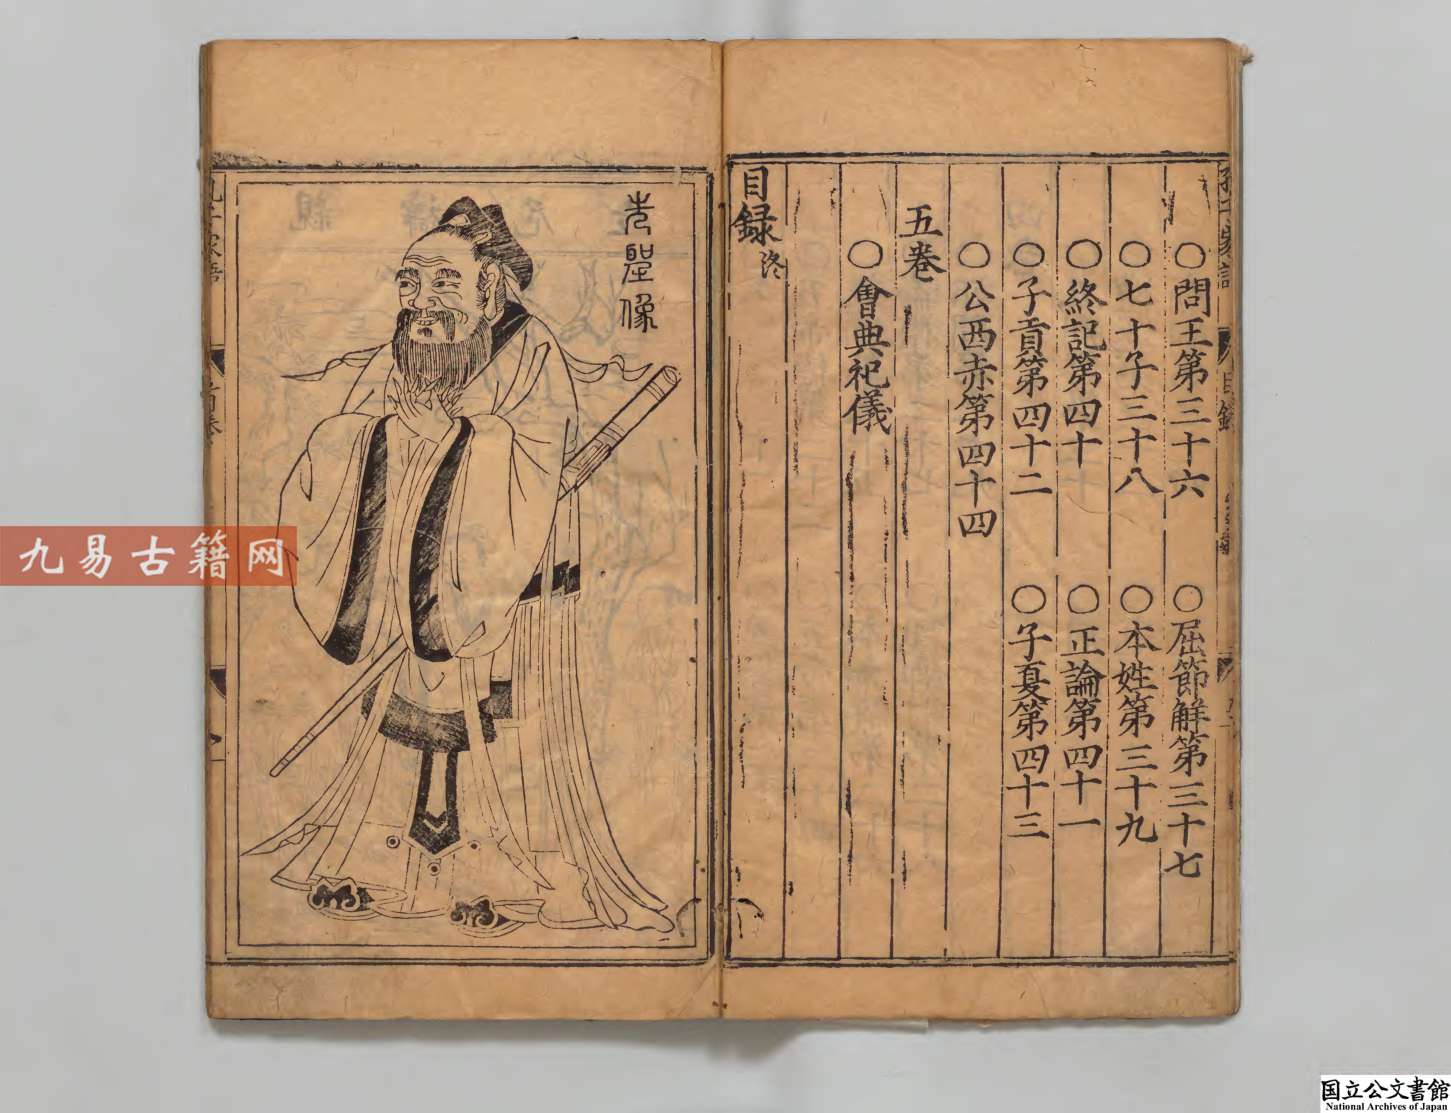 ○問玉第三十六
○屈節解第三十七
○七十子三十八
○本姓第三十九
○終記第四十
○正論第四十一
○子貢第四十二
○子夏第四十三
○公西赤第四十四
五卷
○會典祀儀
目録終
先聖像
九易古籍网
国立公文書館
National Archives of Japan